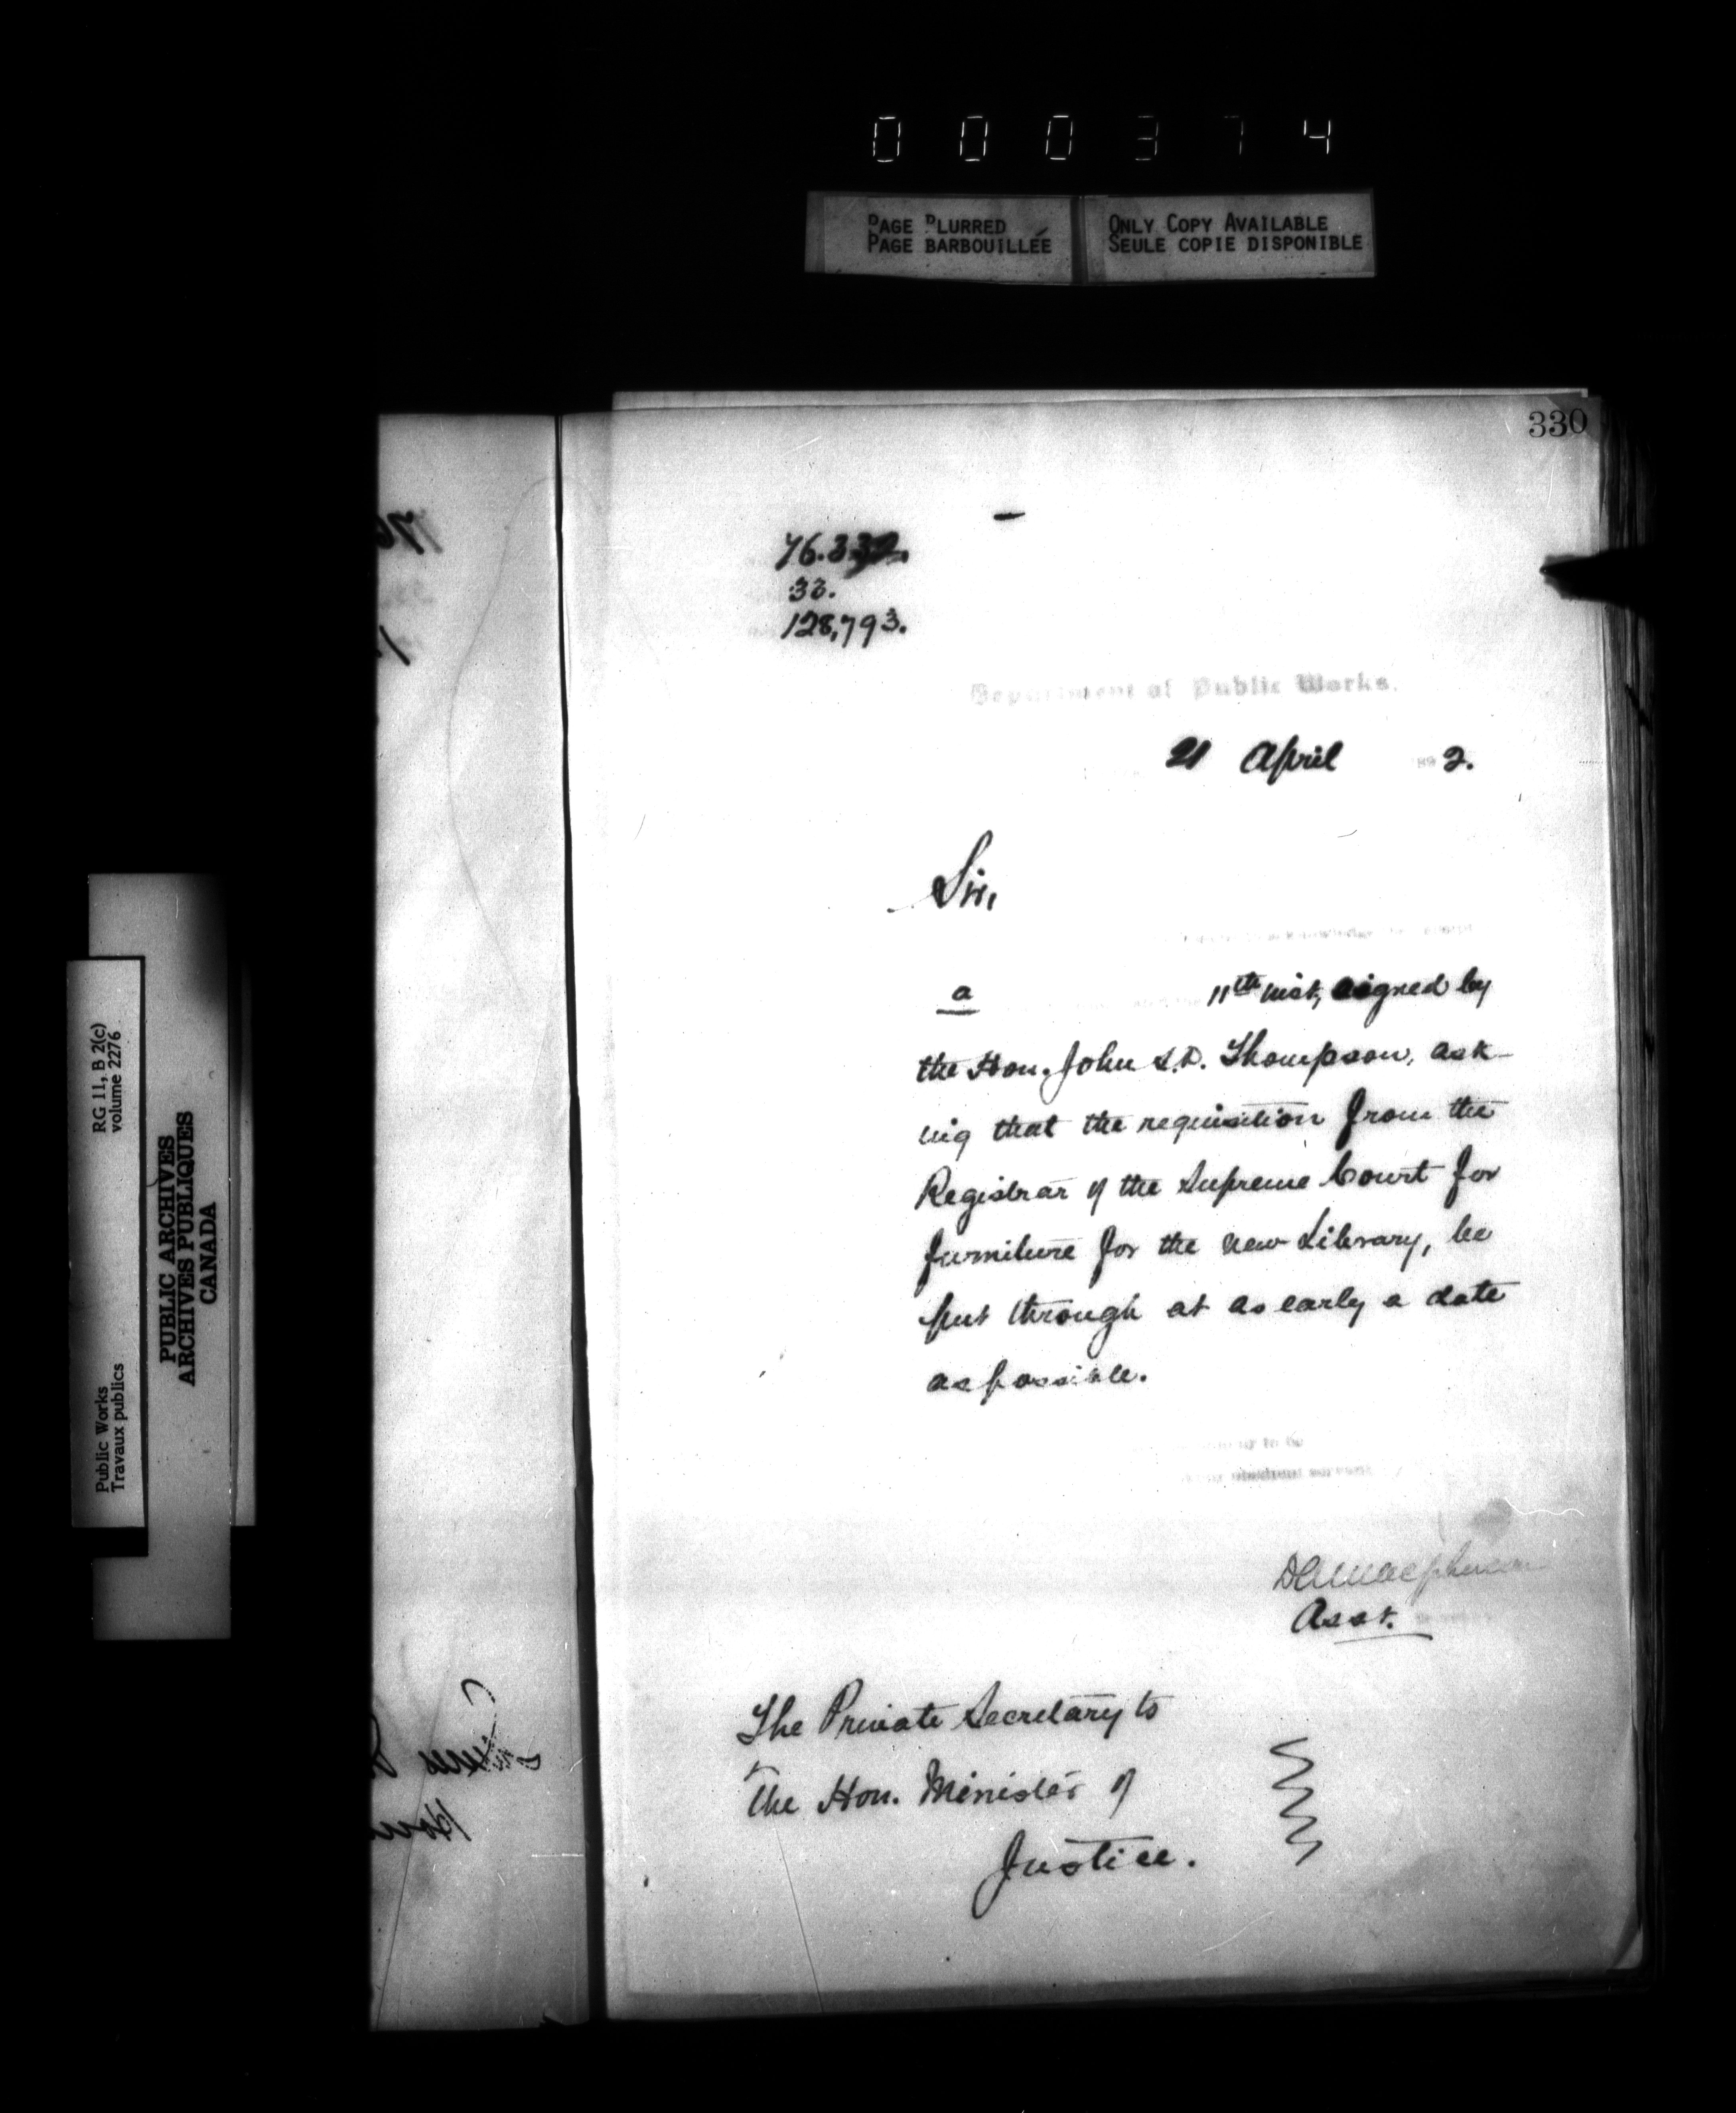 000374
PAGE BLURRED
PAGE BARBOUILLÉE
ONLY COPY AVAILABLE
SEULE COPIE DISPONIBLE
330
76.332.
33.
128,793.
Department of Public Works.
21 April 1892.
Sir,
a 11th inst, signed by
the Hon. John S.D. Thompson, ask-
ing that the requisition from the
Registrar of the Supreme Court for
furniture for the new Library, be
put through at as early a date
as possible.
to be
obedient servant
Asst.
The Private Secretary to
The Hon. Minister of
Justice.
RG 11, B 2(c)
volume 2276
Public Works
Travaux publics
PUBLIC ARCHIVES
ARCHIVES PUBLIQUES
CANADA